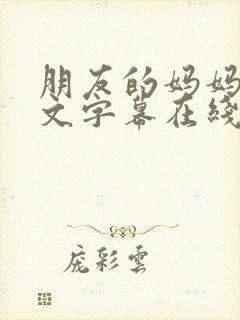 朋友的妈妈
文字幕在线
庞彩云